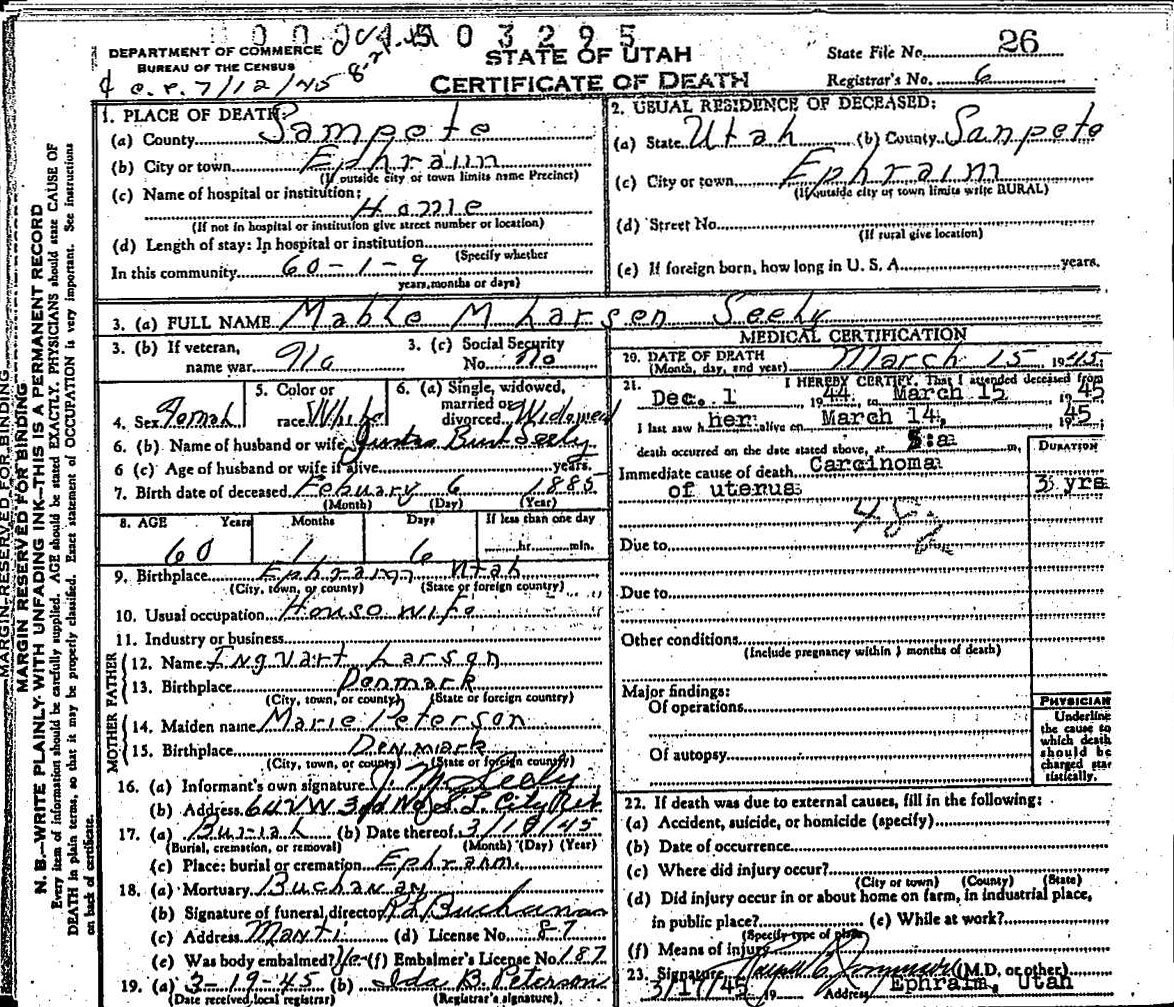 03295
DEPARTMENT OF COMMERCE
BUREAU OF THE CENSUS
STATE OF UTAH
CERTIFICATE OF DEATH
State File No. 26
Registrar's No. 6
c.r. 7/12/45
1. PLACE OF DEATH:
(a) County Sampete
(b) City or town Ephraim
(If outside city or town limits name Precinct)
(c) Name of hospital or institution:
Home
(If not in hospital or institution give street number or location)
(d) Length of stay: In hospital or institution
(Specify whether
In this community 60-1-9
years, months or days)
2. USUAL RESIDENCE OF DECEASED:
(a) State Utah (b) County Sanpete
(c) City or town Ephraim
(If outside city or town limits write RURAL)
(d) Street No.
(If rural give location)
(e) If foreign born, how long in U. S. A. years.
3. (a) FULL NAME Mable M Larsen Seely
3. (b) If veteran,
name war No
3. (c) Social Security
No. no
4. Sex Femal
5. Color or
race White
6. (a) Single, widowed,
married or
divorced Widowed
6. (b) Name of husband or wife Justus Seely
6 (c) Age of husband or wife if alive years.
7. Birth date of deceased Febuary 6 1885
(Month) (Day) (Year)
8. AGE Years Months Days If less than one day
60 1 6 hr. min.
9. Birthplace Ephraim Utah
(City, town, or county) (State or foreign country)
10. Usual occupation House wife
11. Industry or business
FATHER
12. Name Ingvart Larson
13. Birthplace Denmark
(City, town, or county) (State or foreign country)
MOTHER
14. Maiden name Marie Peterson
15. Birthplace Denmark
(City, town, or county) (State or foreign country)
16. (a) Informant's own signature J. M. Seely
(b) Address W 3rd No S L City
17. (a) Buriah (b) Date thereof 3/18/45
(Burial, cremation, or removal) (Month) (Day) (Year)
(c) Place: burial or cremation Ephraim
18. (a) Mortuary Buchanan
(b) Signature of funeral director Buchanan
(c) Address Manti (d) License No. 87
(e) Was body embalmed? Yes (f) Embalmer's License No. 187
19. (a) 3-19-45 (b) Ida B. Peterson
(Date received local registrar) (Registrar's signature)
MEDICAL CERTIFICATION
20. DATE OF DEATH
(Month, day, and year) March 15 1945
21. I HEREBY CERTIFY, That I attended deceased from
Dec. 1 1944, to March 15 1945
I last saw her alive on March 14, 1945
death occurred on the date stated above, at 5:a m,
DURATION
Immediate cause of death Carcinoma
of uterus 3 yrs
48
Due to
Due to
Other conditions
(Include pregnancy within 3 months of death)
Major findings:
Of operations
Of autopsy
PHYSICIAN
Underline
the cause to
which death
should be
charged sta-
tistically.
22. If death was due to external causes, fill in the following:
(a) Accident, suicide, or homicide (specify)
(b) Date of occurrence
(c) Where did injury occur?
(City or town) (County) (State)
(d) Did injury occur in or about home on farm, in industrial place,
in public place? (e) While at work?
(Specify type of place)
(f) Means of injury
23. Signature (M.D. or other)
3/17/45 19 Address Ephraim, Utah
MARGIN RESERVED FOR BINDING
MARGIN RESERVED FOR BINDING
N. B.—WRITE PLAINLY, WITH UNFADING INK—THIS IS A PERMANENT RECORD
Every item of information should be carefully supplied. AGE should be stated EXACTLY. PHYSICIANS should state CAUSE OF
DEATH in plain terms, so that it may be properly classified. Exact statement of OCCUPATION is very important. See instructions
on back of certificate.